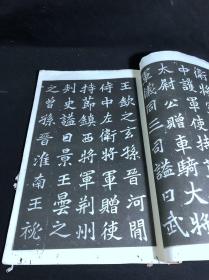 衛將
中護軍使持
太尉公贈車騎大將
軍儀同三司謚曰武
王欽之玄孫晉河間
侍中左衛將軍贈使
持節鎮西將軍荊州
刺史謚曰景王曇之
之曾孫晉淮南王祕